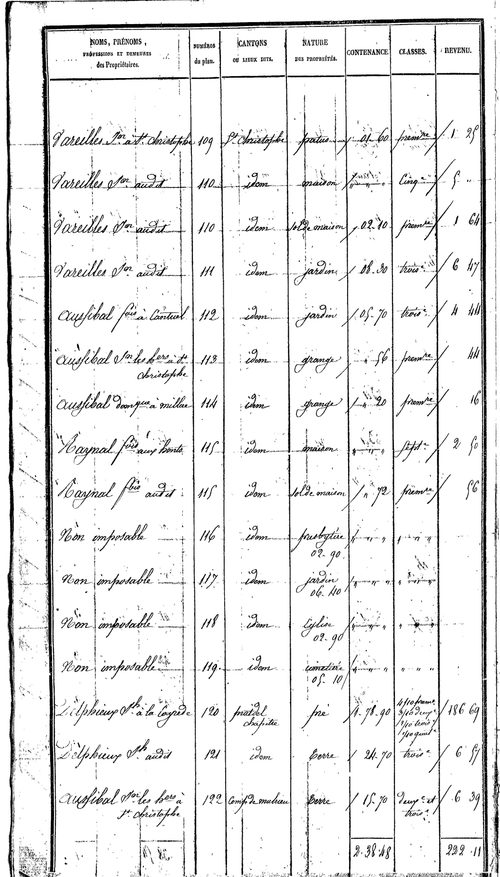 NOMS, PRÉNOMS,
PROFESSIONS ET DEMEURES
des Propriétaires.
NUMÉROS
du plan.
CANTONS
OU LIEUX DITS.
NATURE
DES PROPRIÉTÉS.
CONTENANCE.
CLASSES.
REVENU.
Vareilles Jon à St christophe 109 St christophe patus 01 60 premre 1 25
Vareilles Jon audit 110 idem maison " " " Cinqe 5 "
Vareilles Jon audit 110 idem sol de maison 02. 10 premre 1 64
Vareilles Jon audit 111 idem jardin 08. 30 troise 6 47
Aussibal fois à Canteul 112 idem jardin 05. 70 troise 4 44
Aussibal Jon les hers à St 113 idem grange " 56 premre 44
christophe
Aussibal à millau 114 idem grange " 20 premre 16
Raynal fois aux honts 115 idem maison " " " septe 2 50
Raynal fois audit 115 idem sol de maison " 72 premre 56
Non imposable 116 idem presbytère " " " " " "
02. 90
Non imposable 117 idem jardin " " " " " "
06. 40
Non imposable 118 idem Eglise " " " " " "
02. 90
Non imposable 119 idem cimetière " " " " " "
05. 10
Delphieux Jh à la 120 pradel pré 1. 78. 90 186 69
chapitre
Delphieux Jh audit 121 idem Terre 24. 70 troise 6 57
Aussibal Jon les hers à 122 Terre 15. 70 deuxe et 6 39
St christophe troise
2. 38. 48 222. 11